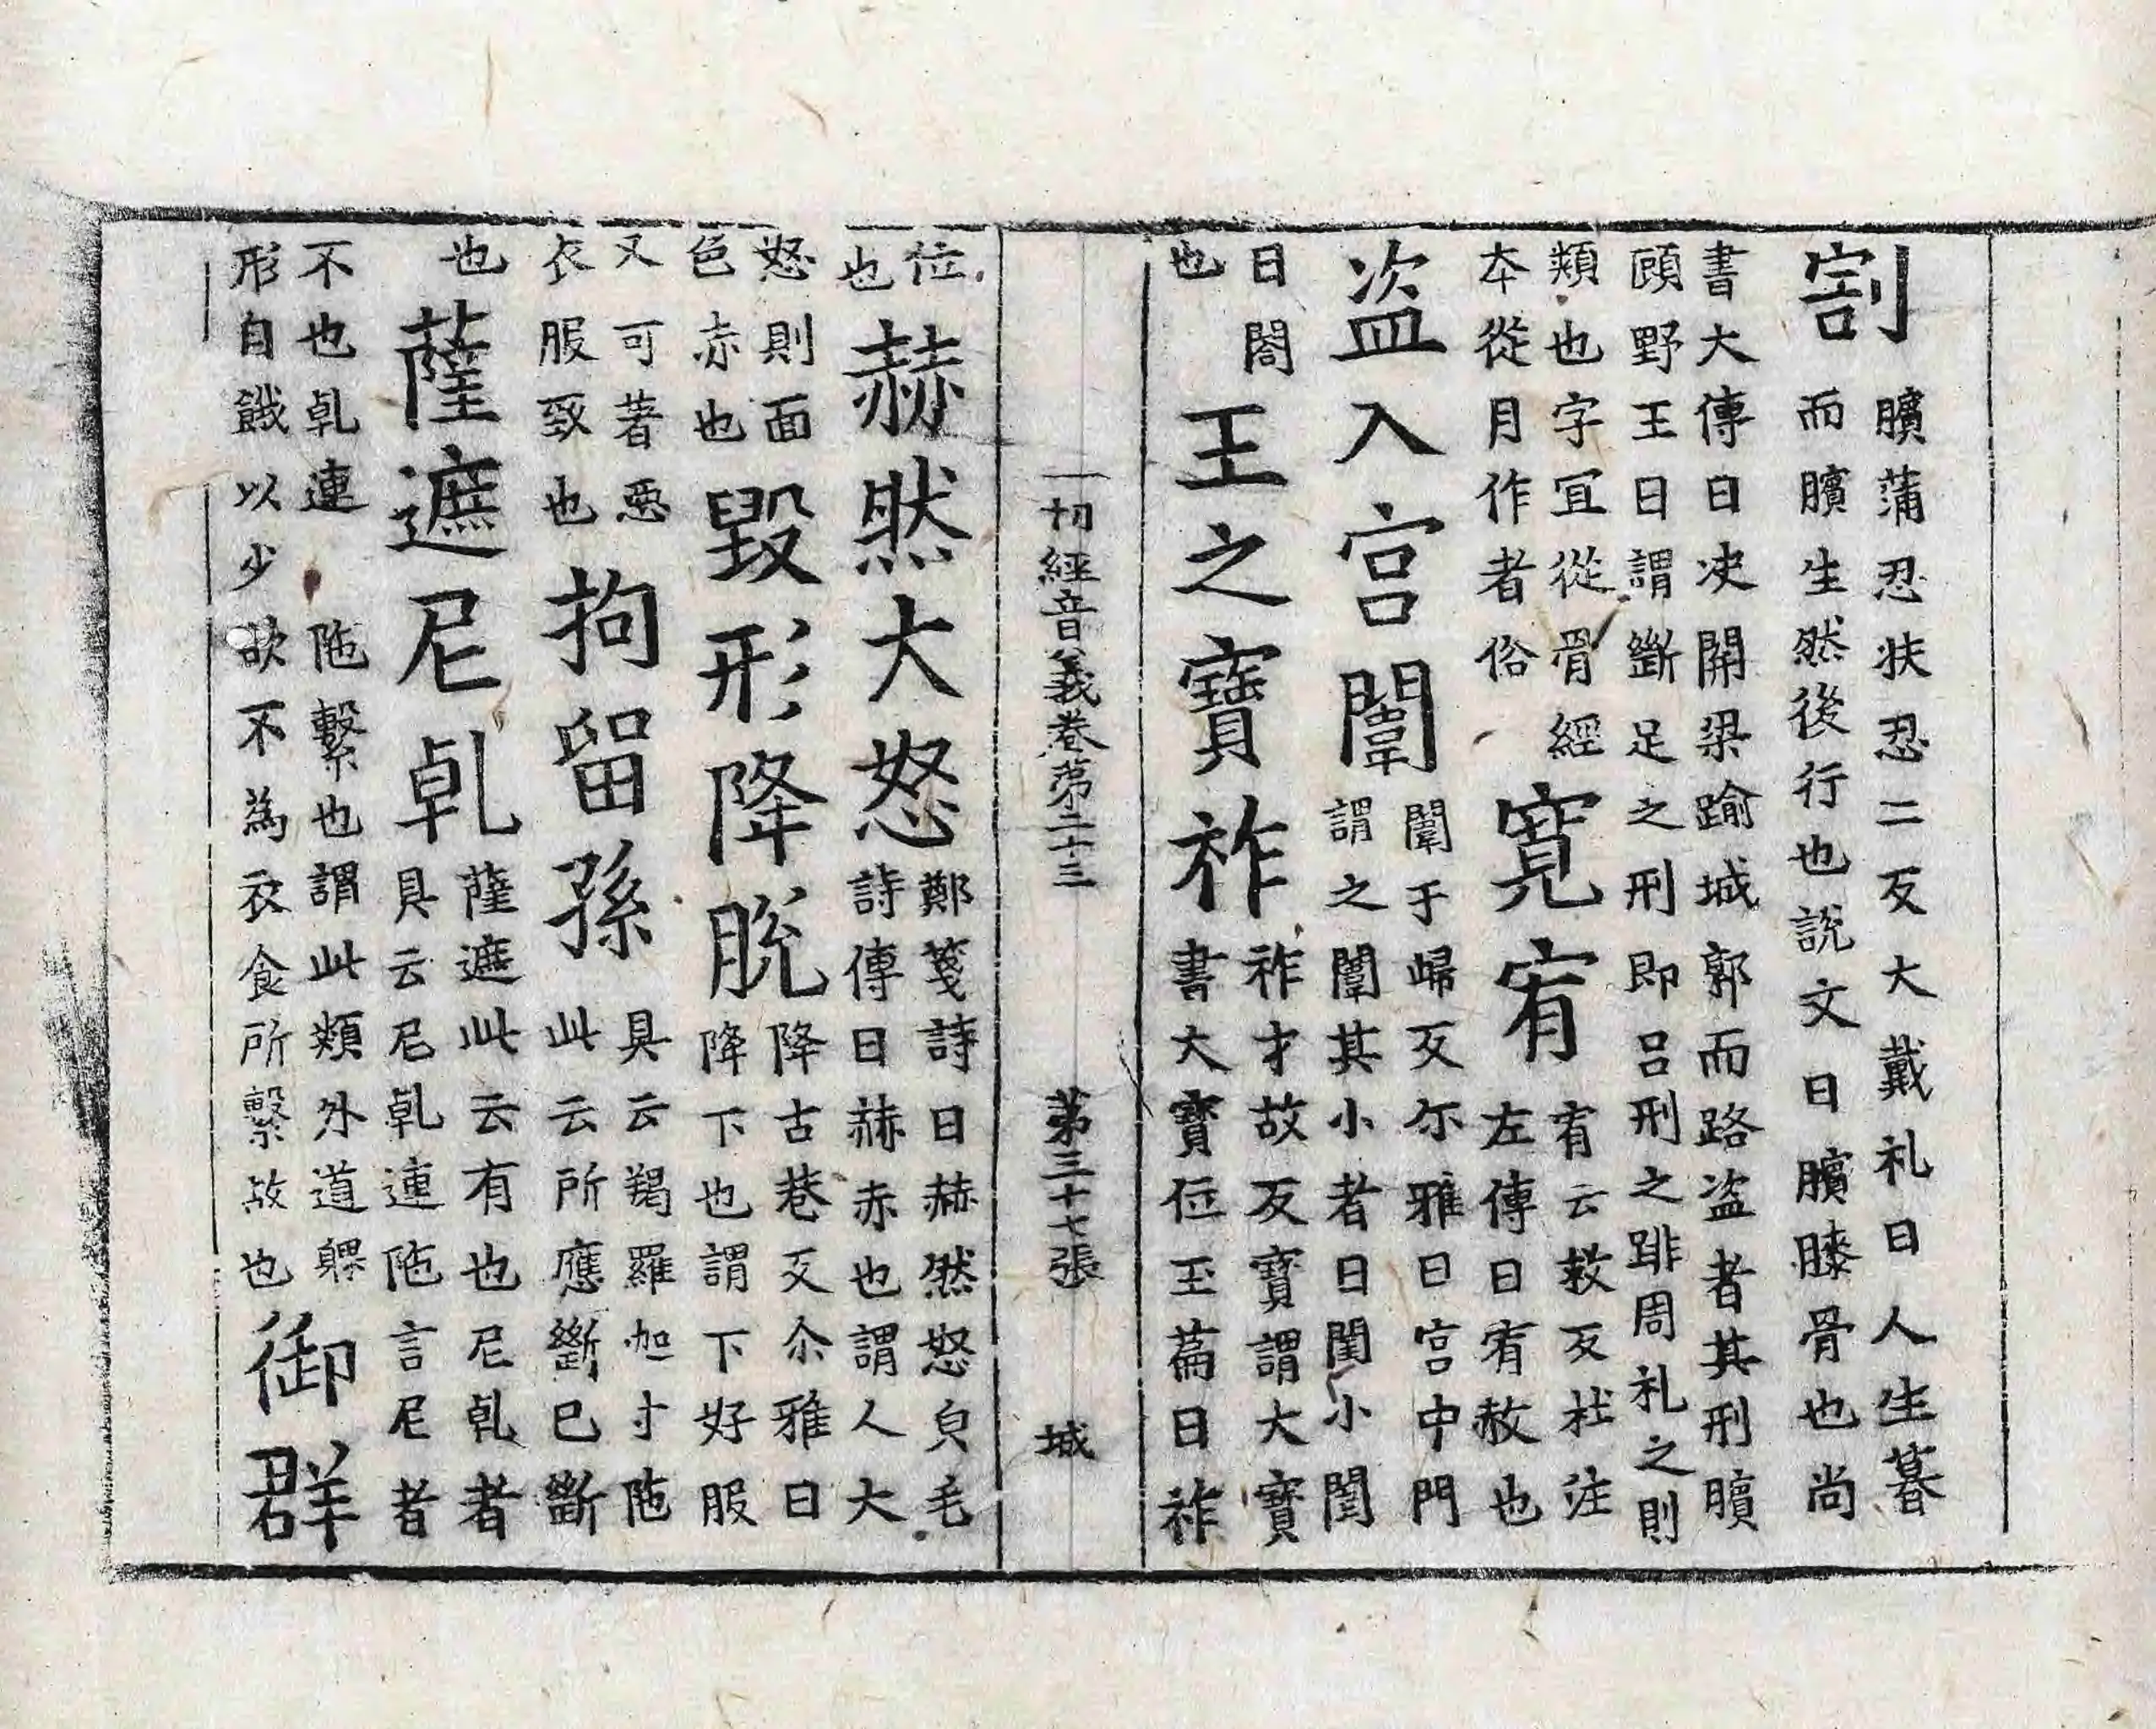 割
臏蒲忍扶忍二反大戴礼曰人生暮
而臏生然後行也說文曰臏膝骨也尚
書大傳曰决關梁踰城郭而路盗者其刑臏
頋野王曰謂斷足之刑即吕刑之跸周礼之則
類也字冝從骨經
本從月作者俗
寬宥
宥云救反杜注
左傳曰宥赦也
盗入宫闈
闈于㱕反尒雅曰宫中門
謂之闈其小者曰閨小閨
曰閤
也
王之寶祚
祚才故反寶謂大寶
書大寶位王萹曰祚
一切經音義卷第二十三
第三十七張
城
位
也
赫然大怒
鄭箋詩曰赫然怒皃毛
詩傳曰赫赤也謂人大
怒則面
色赤也
毀形降脱
降古巷反尒雅曰
降下也謂下好服
又可著惡
衣服致也
拘留孫
具云羯羅迦寸陁
此云所應斷已斷
也
薩遮尼乹
薩遮此云有也尼乹者
具云尼乹連陁言尼者
不也乹連陁繫也謂此類外道躶
形自餓以少欲不為衣食所繫故也
御群